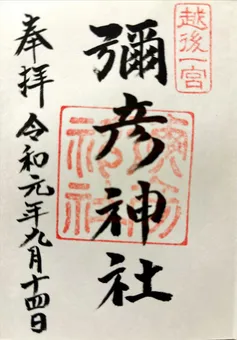 越後一宮
彌彦神社
奉拝令和元年九月十四日